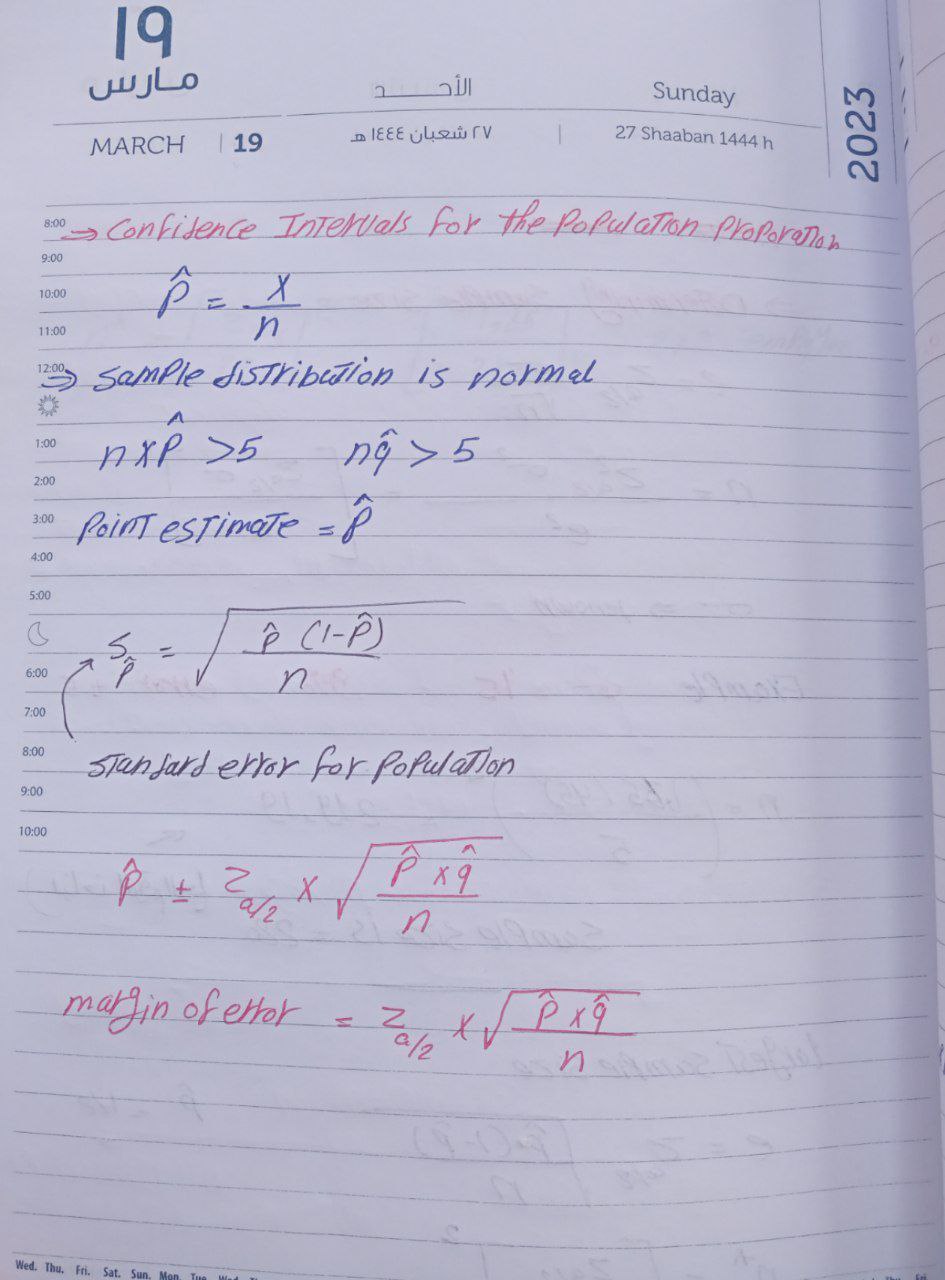 ١٩
مارس
الأحد
Sunday
MARCH | 19
٢٧ شعبان ١٤٤٤ هـ | 27 Shaaban 1444 h
2023
8:00 ⇒ Confidence Intervals for the Population Proporation
9:00
10:00 p̂ = x/n
11:00
12:00 ⇒ sample distribution is normal
1:00 n x p̂ > 5 n q̂ > 5
2:00
3:00 Point estimate = p̂
4:00
5:00
S_p̂ = √(p̂ (1-p̂) / n)
6:00
7:00
8:00 standard error for Population
9:00
10:00
p̂ ± Z_a/2 x √(p̂ x q̂ / n)
margin of error = Z_a/2 x √(p̂ x q̂ / n)
Wed. Thu. Fri. Sat. Sun. Mon. Tue. Wed.